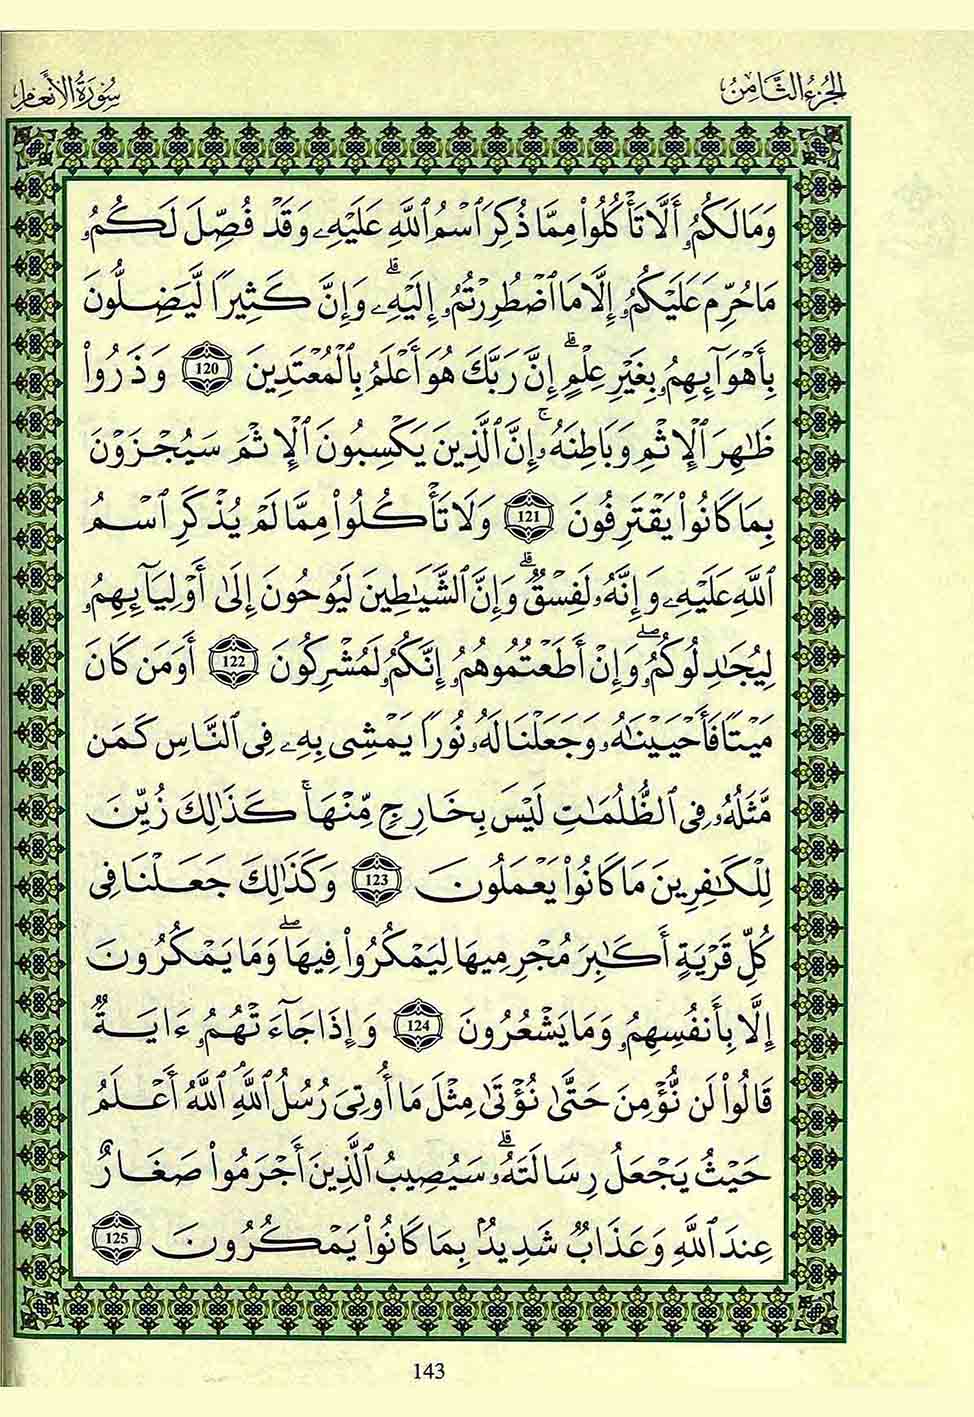 الجزء الثامن
سورة الأنعام
وَمَا لَكُمُۥٓ أَلَّا تَأْكُلُوا۟ مِمَّا ذُكِرَ ٱسْمُ ٱللَّهِ عَلَيْهِۦ وَقَدْ فُصِّلَ لَكُمُۥ
مَا حُرِّمَ عَلَيْكُمُۥٓ إِلَّا مَا ٱضْطُرِرْتُمُۥٓ إِلَيْهِۦ ۗ وَإِنَّ كَثِيرًا لَّيَضِلُّونَ
بِأَهْوَآئِهِمُۥ بِغَيْرِ عِلْمٍ ۗ إِنَّ رَبَّكَ هُوَ أَعْلَمُ بِٱلْمُعْتَدِينَ 120 وَذَرُوا۟
ظَٰهِرَ ٱلْإِثْمِ وَبَاطِنَهُۥٓ ۚ إِنَّ ٱلَّذِينَ يَكْسِبُونَ ٱلْإِثْمَ سَيُجْزَوْنَ
بِمَا كَانُوا۟ يَقْتَرِفُونَ 121 وَلَا تَأْكُلُوا۟ مِمَّا لَمْ يُذْكَرِ ٱسْمُ
ٱللَّهِ عَلَيْهِۦ وَإِنَّهُۥ لَفِسْقٌ ۗ وَإِنَّ ٱلشَّيَٰطِينَ لَيُوحُونَ إِلَىٰٓ أَوْلِيَآئِهِمُۥ
لِيُجَٰدِلُوكُمُۥ ۖ وَإِنْ أَطَعْتُمُوهُمُۥٓ إِنَّكُمُۥ لَمُشْرِكُونَ 122 أَوَمَن كَانَ
مَيْتًا فَأَحْيَيْنَٰهُۥ وَجَعَلْنَا لَهُۥ نُورًا يَمْشِى بِهِۦ فِى ٱلنَّاسِ كَمَن
مَّثَلُهُۥ فِى ٱلظُّلُمَٰتِ لَيْسَ بِخَارِجٍ مِّنْهَا ۚ كَذَٰلِكَ زُيِّنَ
لِلْكَٰفِرِينَ مَا كَانُوا۟ يَعْمَلُونَ 123 وَكَذَٰلِكَ جَعَلْنَا فِى
كُلِّ قَرْيَةٍ أَكَٰبِرَ مُجْرِمِيهَا لِيَمْكُرُوا۟ فِيهَا ۖ وَمَا يَمْكُرُونَ
إِلَّا بِأَنفُسِهِمُۥ وَمَا يَشْعُرُونَ 124 وَإِذَا جَآءَتْهُمُۥٓ ءَايَةٌ
قَالُوا۟ لَن نُّؤْمِنَ حَتَّىٰ نُؤْتَىٰ مِثْلَ مَآ أُوتِىَ رُسُلُ ٱللَّهِ ۘ ٱللَّهُ أَعْلَمُ
حَيْثُ يَجْعَلُ رِسَالَتَهُۥ ۗ سَيُصِيبُ ٱلَّذِينَ أَجْرَمُوا۟ صَغَارٌ
عِندَ ٱللَّهِ وَعَذَابٌ شَدِيدٌۢ بِمَا كَانُوا۟ يَمْكُرُونَ 125
143